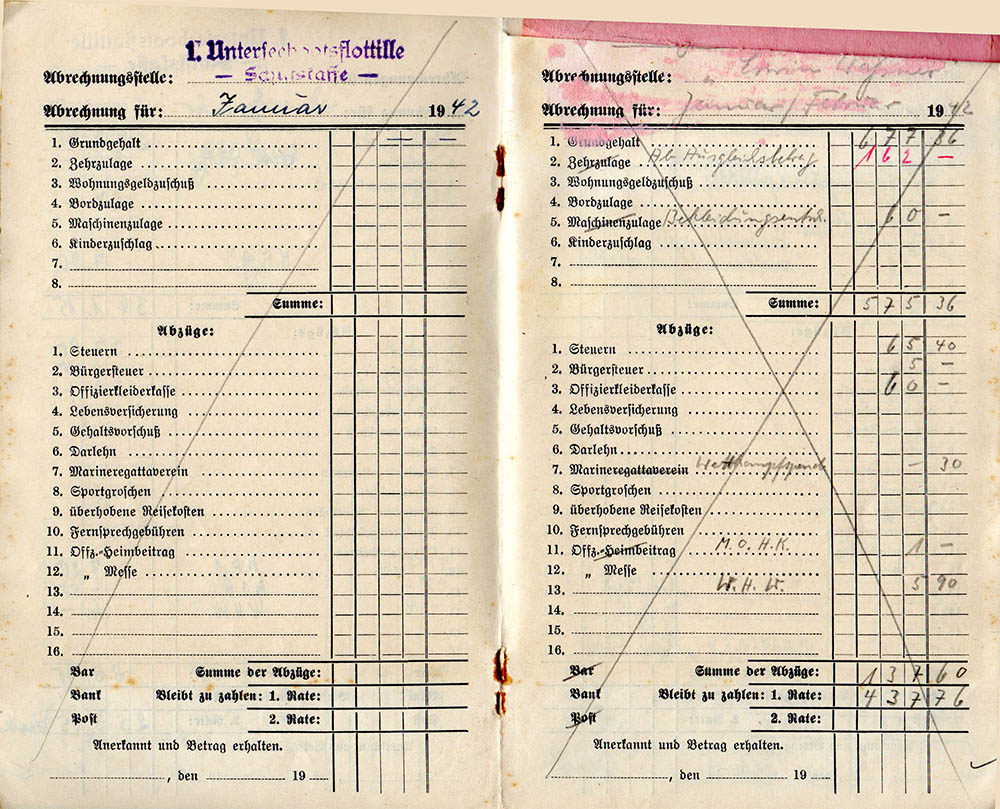 1. Unterseebootsflottille
Abrechnungsstelle:
— Schiffskasse —
Abrechnung für: Januar 1942
1. Grundgehalt — —
2. Zehrzulage
3. Wohnungsgeldzuschuß
4. Bordzulage
5. Maschinenzulage
6. Kinderzuschlag
7.
8.
Summe:
Abzüge:
1. Steuern
2. Bürgersteuer
3. Offizierkleiderkasse
4. Lebensversicherung
5. Gehaltsvorschuß
6. Darlehn
7. Marineregattaverein
8. Sportgroschen
9. überhobene Reisekosten
10. Fernsprechgebühren
11. Offz.-Heimbeitrag
12. „ Messe
13.
14.
15.
16.
Bar Summe der Abzüge:
Bank Bleibt zu zahlen: 1. Rate:
Post 2. Rate:
Anerkannt und Betrag erhalten.
, den 19
Abrechnungsstelle:
Abrechnung für: Januar/Februar 1942
1. Grundgehalt 677 36
2. Zehrzulage Ab: Ausgleichsbetrag 162 —
3. Wohnungsgeldzuschuß
4. Bordzulage
5. Maschinenzulage Bekleidungsentsch. 60 —
6. Kinderzuschlag
7.
8.
Summe: 575 36
Abzüge:
1. Steuern 65 40
2. Bürgersteuer 5 —
3. Offizierkleiderkasse 60 —
4. Lebensversicherung
5. Gehaltsvorschuß
6. Darlehn
7. Marineregattaverein — 30
8. Sportgroschen
9. überhobene Reisekosten
10. Fernsprechgebühren
11. Offz.-Heimbeitrag M.O.H.K. 1 —
12. „ Messe
13. W.H.W. 5 90
14.
15.
16.
Bar Summe der Abzüge: 137 60
Bank Bleibt zu zahlen: 1. Rate: 437 76
Post 2. Rate:
Anerkannt und Betrag erhalten.
, den 19